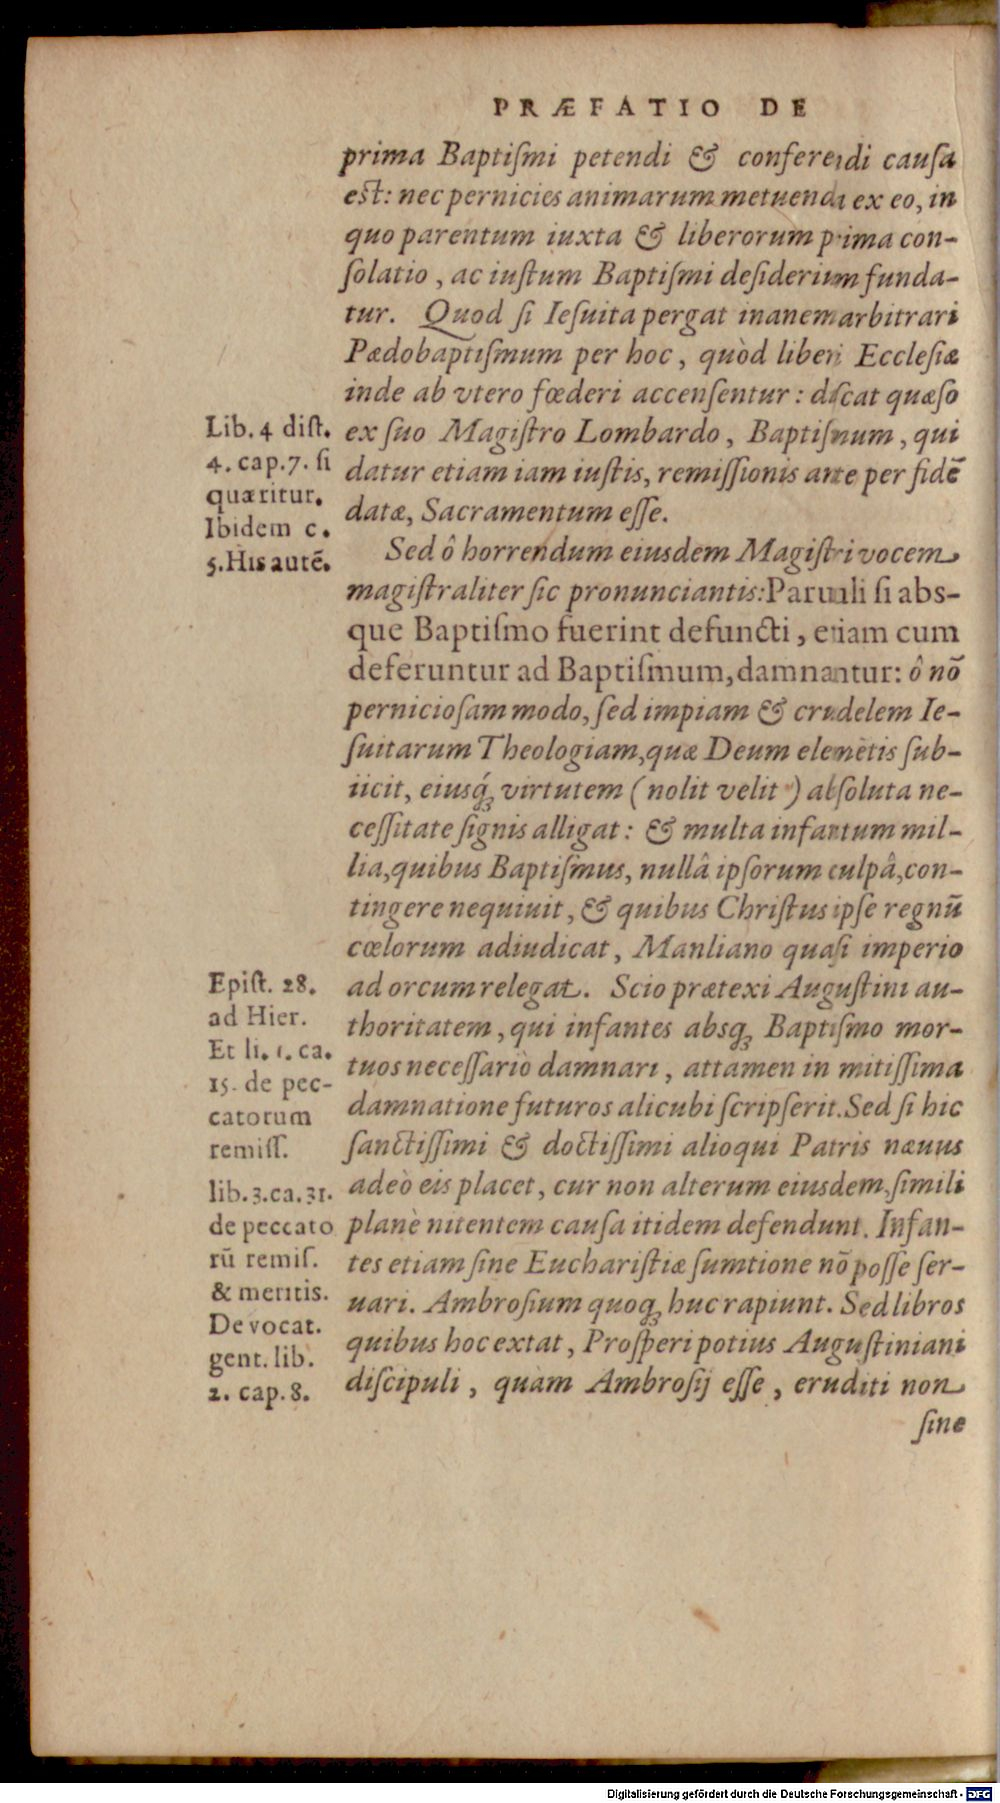 PRÆFATIO DE
prima Baptiſmi petendi & conferendi cauſa
eſt: nec pernicies animarum metuenda ex eo, in
quo parentum iuxta & liberorum prima con-
ſolatio, ac iuſtum Baptiſmi deſiderium funda-
tur. Quod ſi Ieſuita pergat inanem arbitrari
Pædobaptiſmum per hoc, quòd liberi Eccleſiæ
inde ab vtero fœderi accenſentur: diſcat quæſo
ex ſuo Magiſtro Lombardo, Baptiſmum, qui
datur etiam iam iuſtis, remiſſionis ante per fidē
datæ, Sacramentum eſſe.
Lib. 4 diſt.
4. cap. 7. ſi
quæritur.
Ibidem c.
5. His autē.
Sed ô horrendum eiusdem Magiſtri vocem
magiſtraliter ſic pronunciantis: Paruuli ſi abs-
que Baptiſmo fuerint defuncti, etiam cum
deferuntur ad Baptiſmum, damnantur: ô nō
pernicioſam modo, ſed impiam & crudelem Ie-
ſuitarum Theologiam, quæ Deum elemētis ſub-
iicit, eiusq́ꝫ virtutem (nolit velit) abſoluta ne-
ceſſitate ſignis alligat: & multa infantum mil-
lia, quibus Baptiſmus, nullâ ipſorum culpâ, con-
tingere nequiuit, & quibus Chriſtus ipſe regnū
cœlorum adiudicat, Manliano quaſi imperio
ad orcum relegat. Scio prætexi Auguſtini au-
thoritatem, qui infantes absqꝫ Baptiſmo mor-
tuos neceſſariò damnari, attamen in mitiſſima
damnatione futuros alicubi ſcripſerit. Sed ſi hic
ſanctiſſimi & doctiſſimi alioqui Patris næuus
adeò eis placet, cur non alterum eiusdem, ſimili
planè nitentem cauſa itidem defendunt. Infan-
tes etiam ſine Euchariſtiæ ſumtione nō poſſe ſer-
uari. Ambroſium quoqꝫ huc rapiunt. Sed libros
quibus hoc extat, Proſperi potius Auguſtiniani
diſcipuli, quàm Ambroſij eſſe, eruditi non
Epiſt. 28.
ad Hier.
Et li. 1. ca.
15. de pec-
catorum
remiſſ.
lib. 3. ca. 31.
de peccato
rū remiſ.
& meritis.
De vocat.
gent. lib.
2. cap. 8.
ſine
Digitalisierung gefördert durch die Deutsche Forschungsgemeinschaft - DFG